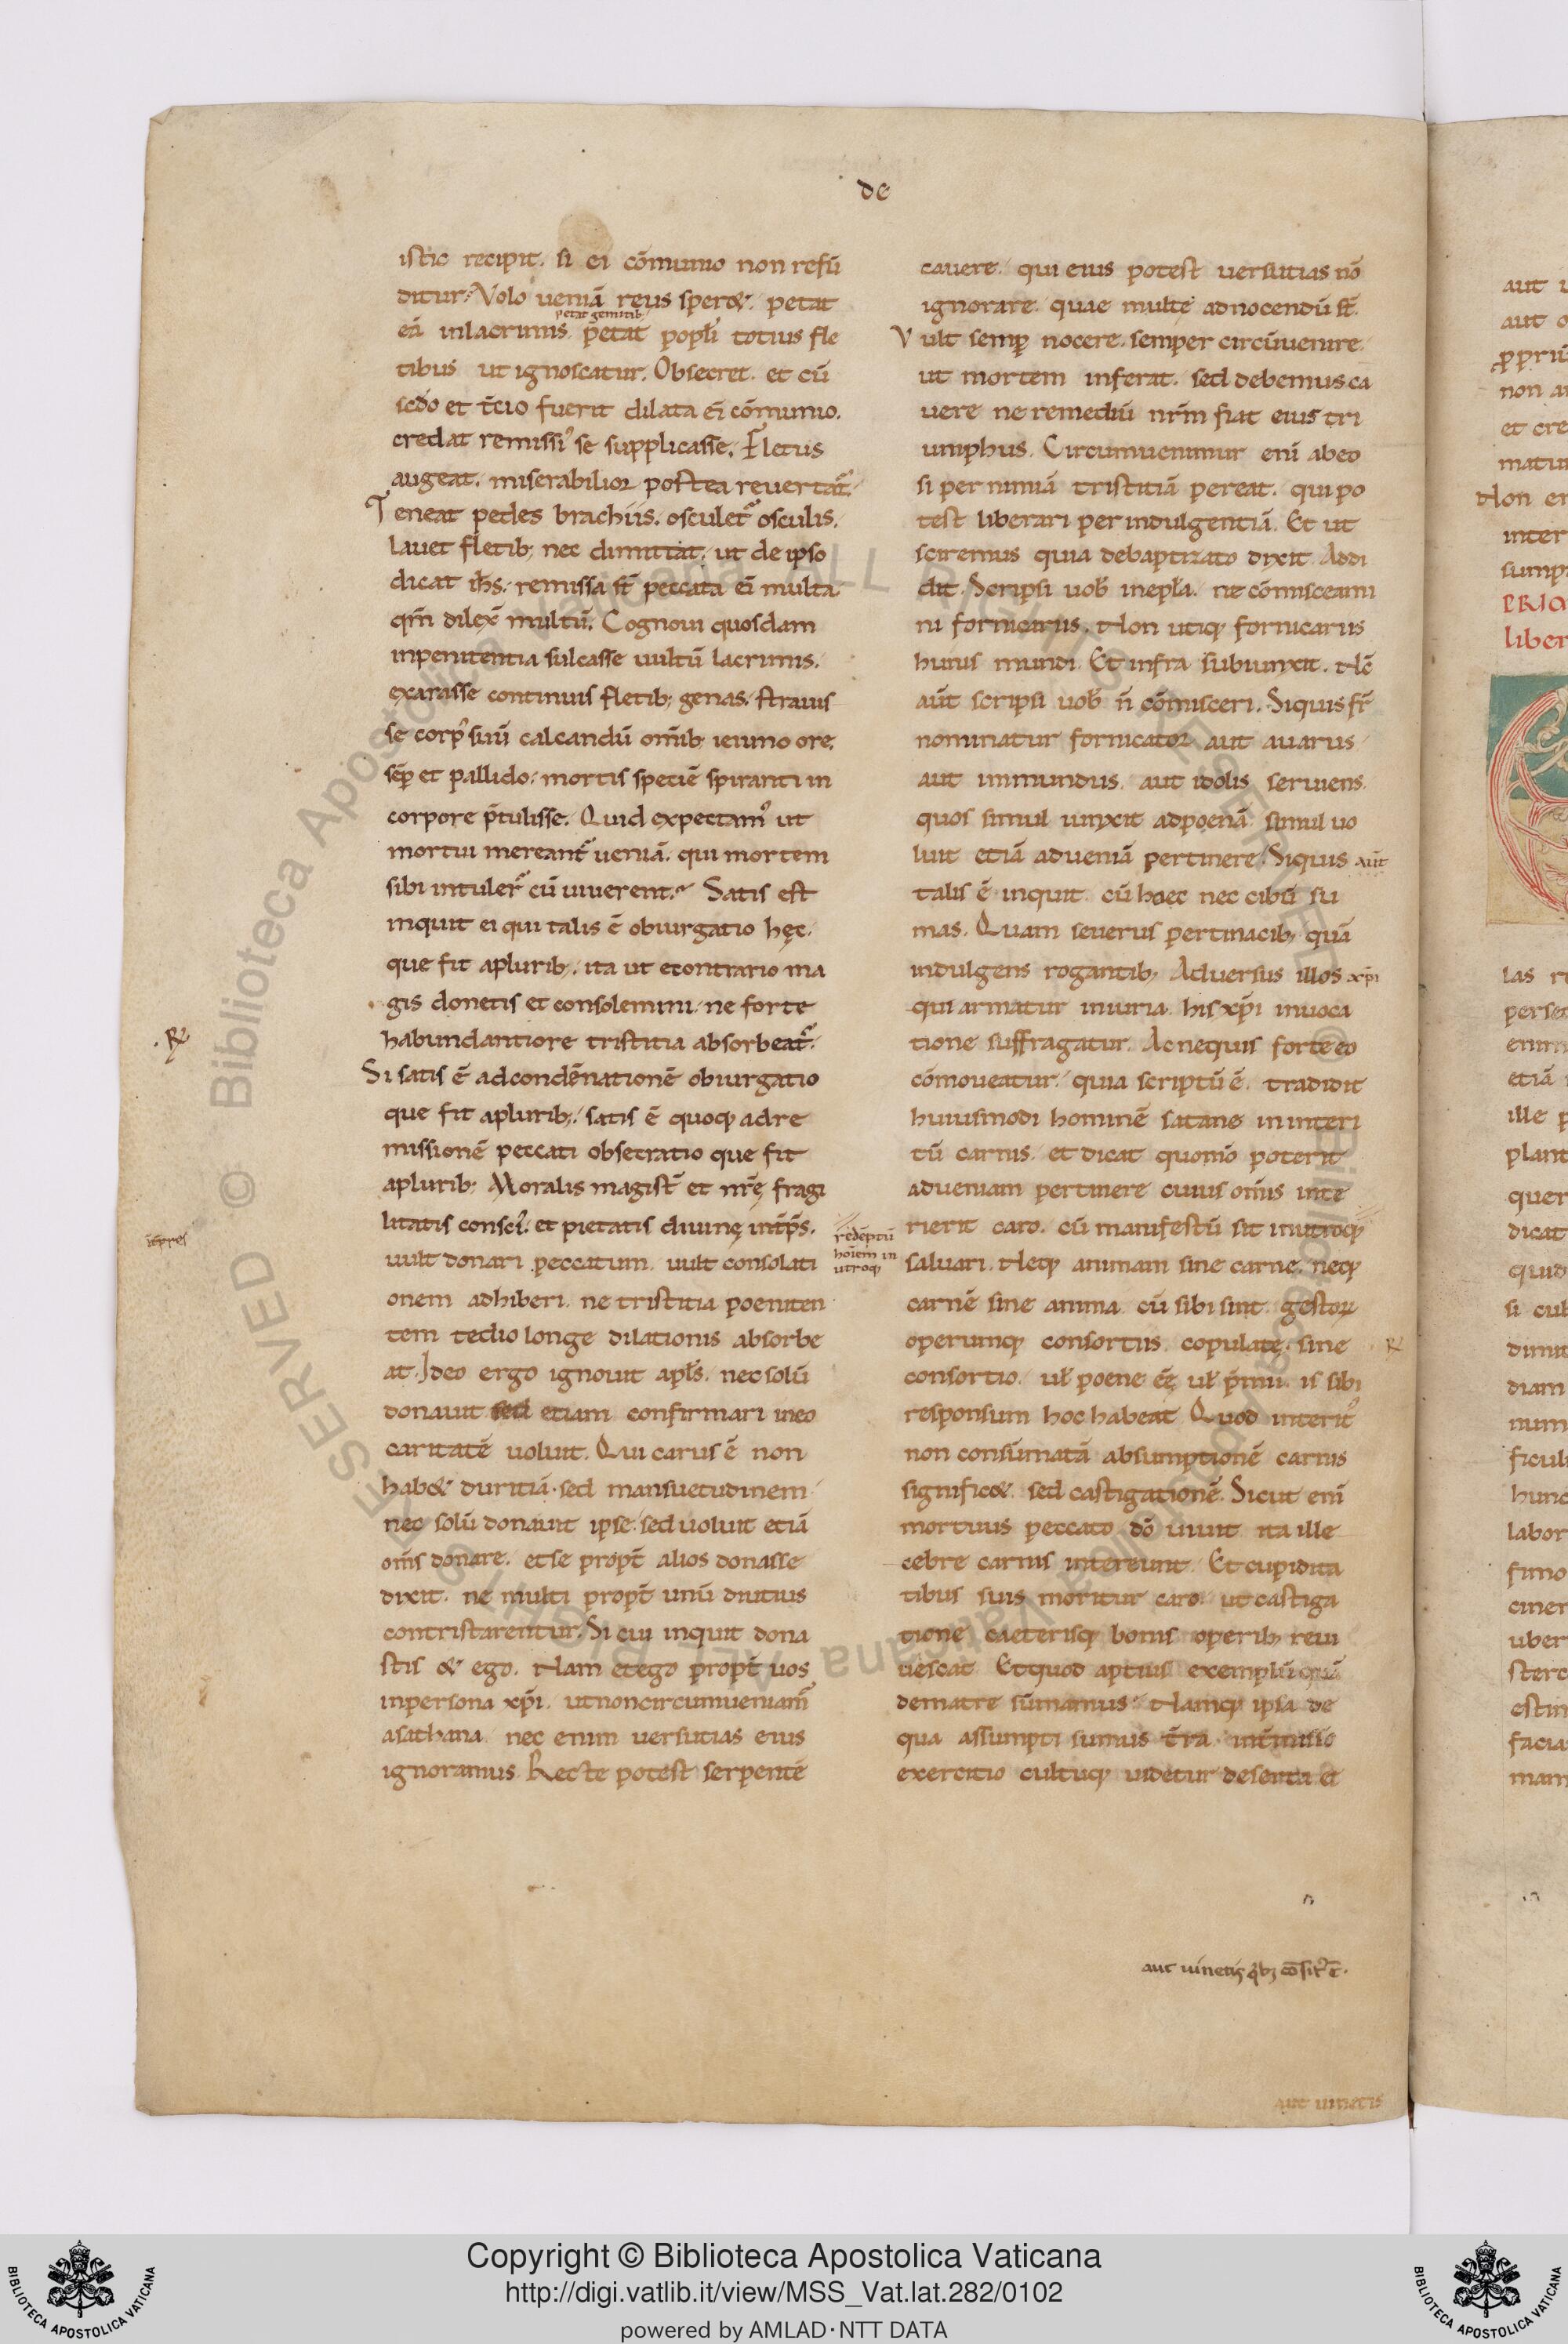 de
istic recipit. si ei cōmunio non refū
ditur. Volo ueniā reus sper&. petat
petat gemitib;
eā inlacrimis. petat popłi totius fle
tibus ut ignoscatur. Obsecret. et cū
sc̄do et t̄cio fuerit dilata ei cōmunio.
credat remissi᾽ se supplicasse. Fletus
augeat. miserabilior postea reuertat᷑.
Teneat pedes brachiis. osculet᷑ osculis.
lauet fletib; nec dimittat. ut de ipso
dicat ih̄s. remissa st̄ peccata ei multa
qm̄ dilex̄ multū. Cognoui quosdam
inpenitentia sulcasse uultū lacrimis.
exarasse continuis fletib; genas. strauis
se corp᾽ suū calcandū om̄ib; ieiuno ore.
sēp et pallido. mortis speciē spiranti in
corpore p̄tulisse. Quid expectam᾽ ut
mortui mereant᷑ ueniā. qui mortem
sibi intuler᷑ cū uiuerent. Satis est
inquit ei qui talis ē obiurgatio hęc.
que fit aplurib;. ita ut econtrario ma
gis donetis et consolemini. ne forte
habundantiore tristitia absorbeat᷑.
Si satis ē adcondēnationē obiurgatio
que fit aplurib;. satis ē quoq; adre
missionē peccati obsecratio que fit
aplurib; Moralis magist̄ et nr̄ę fragi
litatis consci᾽. et pietatis diuinę int̄p̄s.
uult donari peccatum. uult consolati
onem adhiberi. ne tristitia poeniten
tem tedio longe dilationis absorbe
at. Ideo ergo ignouit apłs. nec solū
donauit sed etiam confirmari ineo
caritatē uoluit. Qui carus ē non
hab& duritiā. sed mansuetudinem
nec solū donauit ipse. sed uoluit etiā
om̄s donare. et se propt̄ alios donasse
dixit. ne multi propt̄ unū diutius
contristarentur. Si cui inquit dona
stis & ego. Nam et ego propt̄ uos
inpersona xp̄i. utnoncircumueniam᷑
asathana. nec enim uersutias eius
ignoramus. Recte potest serpentē
cauere. qui eius potest uersutias nō
ignorare. quae multe adnocendū st̄.
Vult semp nocere. semper circūuenire.
ut mortem inferat. sed debemus ca
uere ne remediū nr̄m fiat eius tri
umphus. Circumuenimur enī abeo
si per nimiā tristitiā pereat. qui po
test liberari per indulgentiā. Et ut
sciremus quia debaptizato dixit. Addi
dit. Scripsi uob᾽ inepła. ne cōmisceami
ni fornicariis. Non utiq; fornicariis
huius mundi. Et infra subiunxit. Nc̄
aūt scripsi uob᾽ n̄ cōmisceri. Siquis fr̄
nominatur fornicator aut auarus
aut immundus. aut idolis seruiens.
quos simul iunxit adpoenā simul uo
luit etiā adueniā pertinere. Siquis aūt
talis ē inquit. cū hoec nec cibū su
mas. Quam seuerus pertinacib; quā
indulgens rogantib; Aduersus illos xp̄i
qui armatur iniuria. his xp̄i inuoca
tione suffragatur. Ac nequis forte eo
cōmoueatur. quia scriptū ē. tradidit
huiusmodi hominē satane in interi
tū carnis. et dicat quom̄o poterit
adueniam pertinere cuius om̄is inte
rierit caro. cū manifestū sit inutroq;
redēptū
hoīem in
utroq;
saluari. Neq; animam sine carne. neq;
carnē sine anima. cū sibi sint gestor
operumq; consortiis. copulatę. sine
consortio. uł poene ēę uł p̄mii. is sibi
responsum hoc habeat. Quod interit᾽
non consūmatā absumptionē carnis
signific&. sed castigationē. Sicut enī
mortuus peccato dō uiuit. ita ille
cebre carnis intereunt. Et cupidita
tibus suis moritur caro. ut castiga
tione caeterisq; bonis operib; reui
uescat. Et quod aptius exemplū quā
dematre sūmamus. Namq; ipsa de
qua assumpti sumus t̄ra. int̄misso
exercitio cultuq; uidetur deserta et
aut uinetis
Copyright © Biblioteca Apostolica Vaticana
http://digi.vatlib.it/view/MSS_Vat.lat.282/0102
powered by AMLAD·NTT DATA
BIBLIOTECA APOSTOLICA VATICANA
BIBLIOTECA APOSTOLICA VATICANA